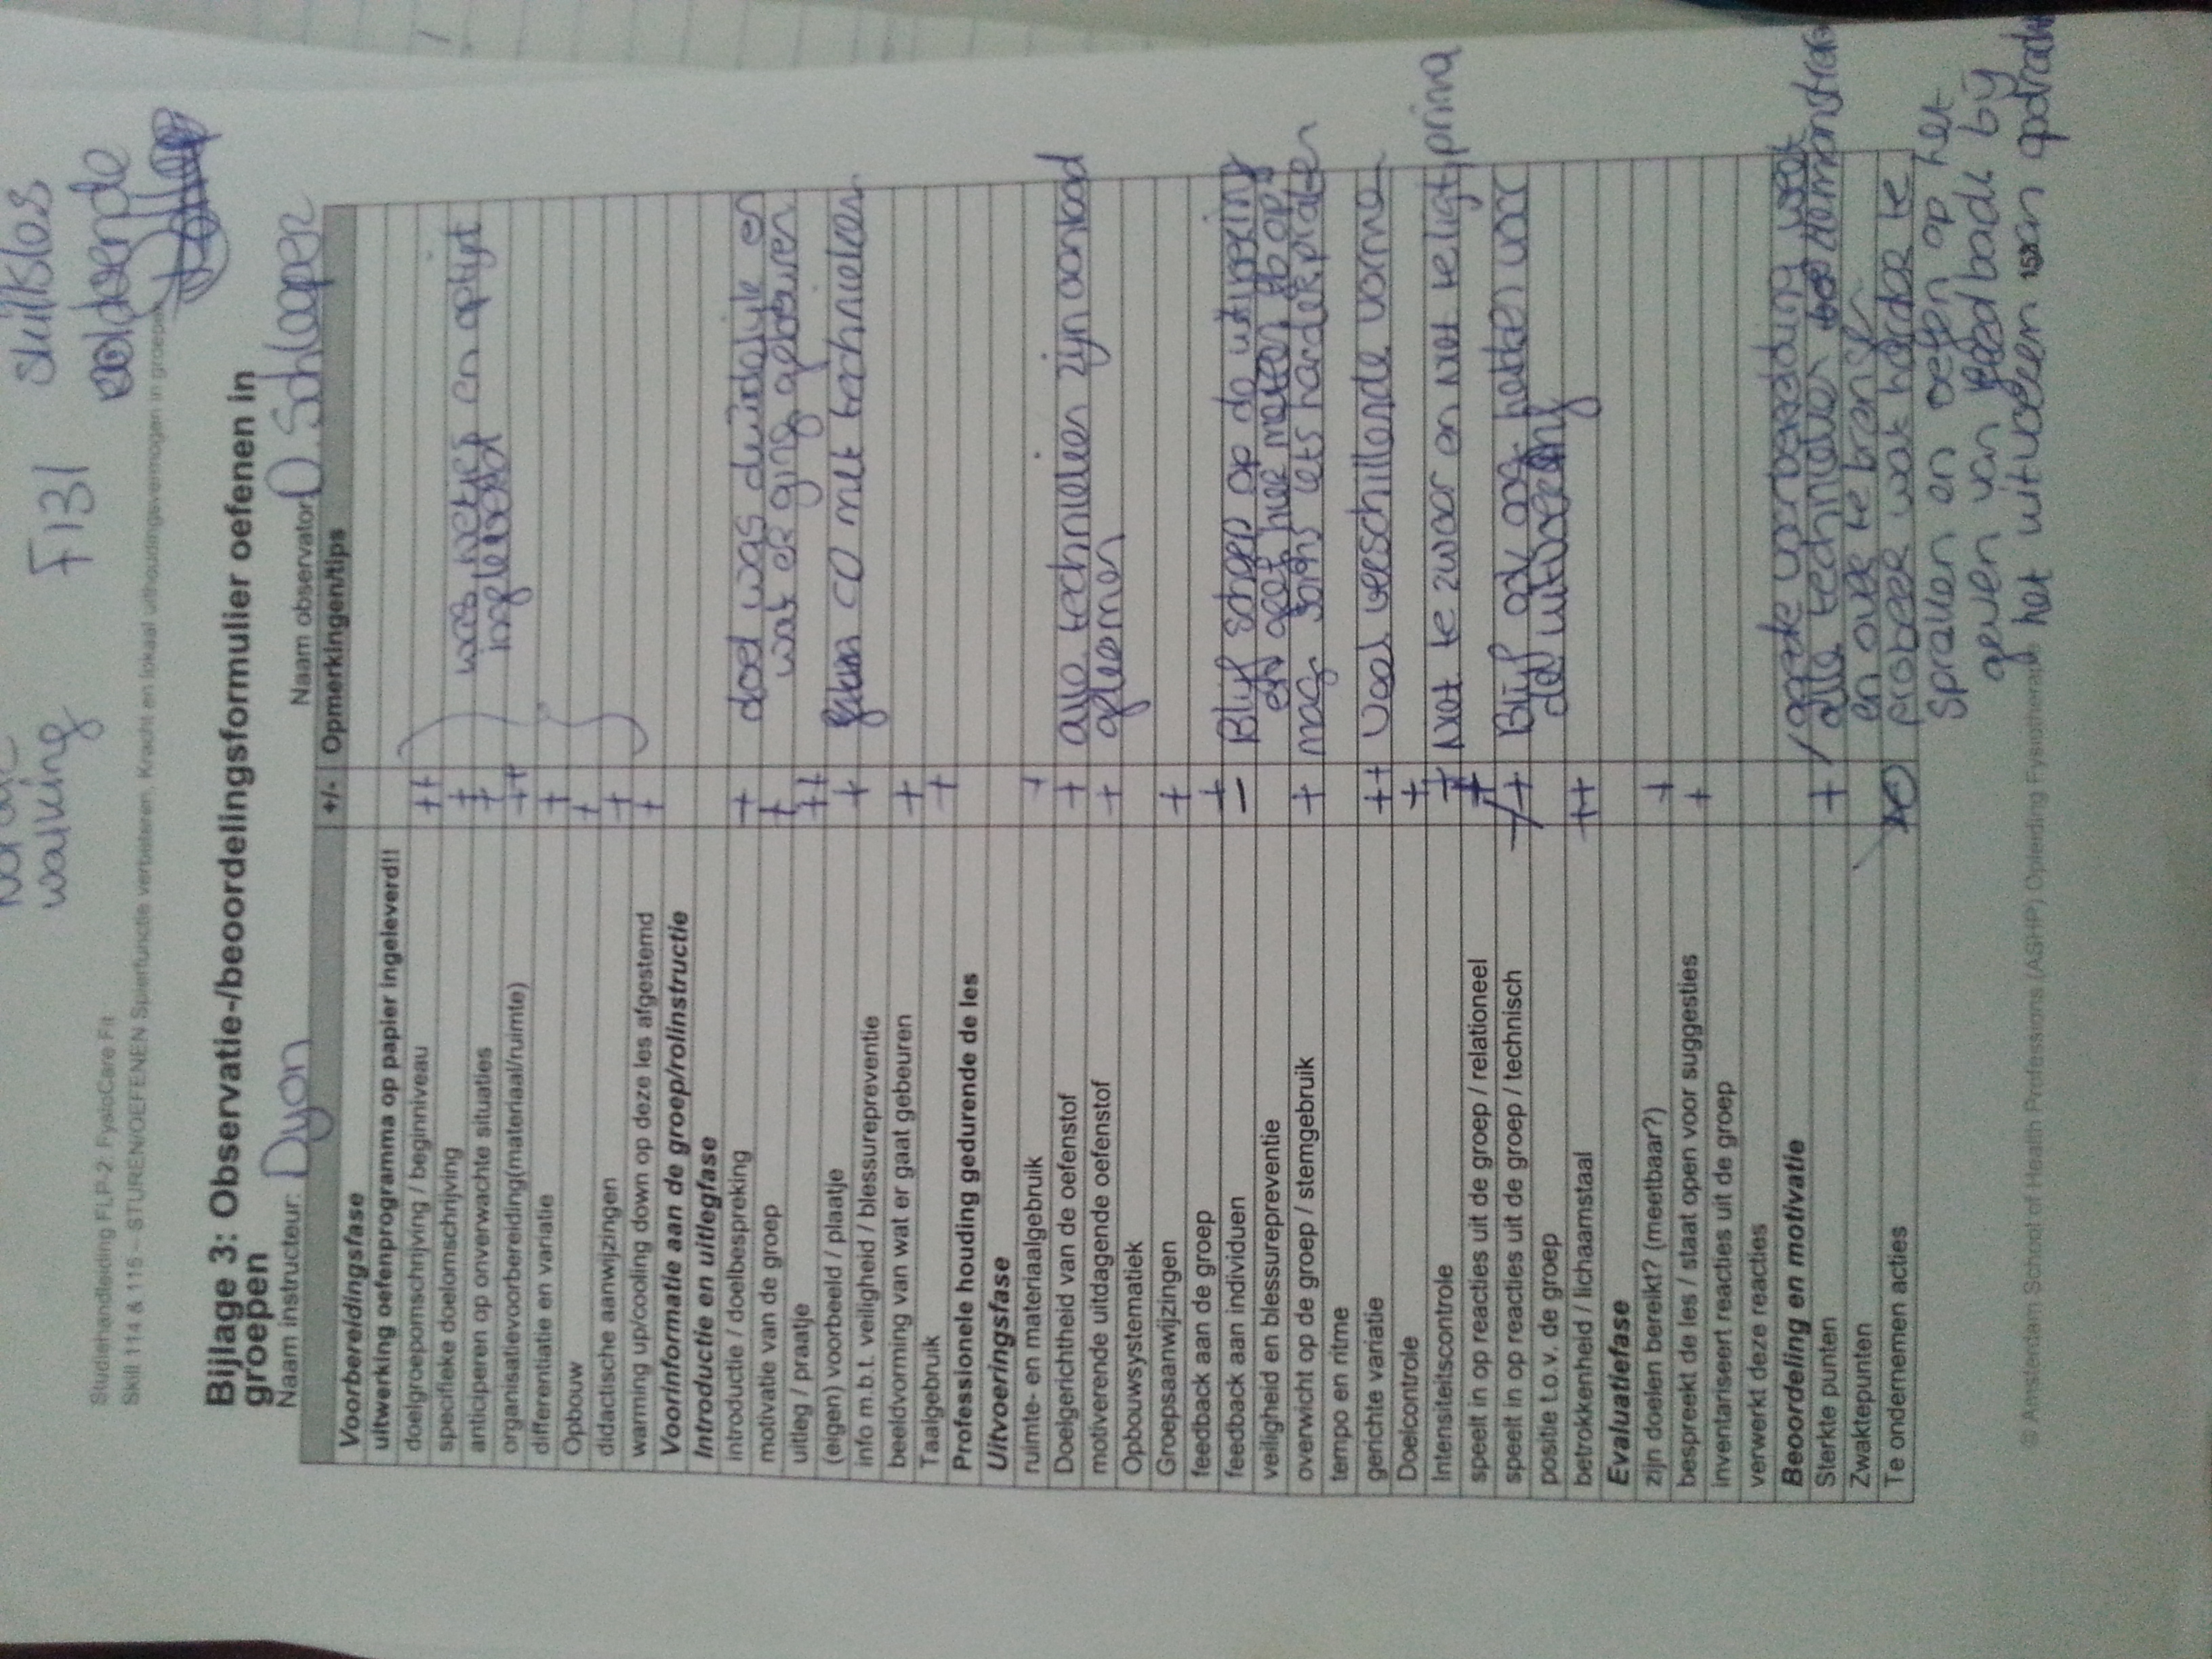 Nordic
walking
F131
skillslos
voldoende
Studiehandleiding FLP-2: FysioCare Fit
Skill 114 & 115 – STUREN/OEFENEN Spierfunctie verbeteren, Kracht en lokaal uithoudingsvermogen in groepen
Bijlage 3: Observatie-/beoordelingsformulier oefenen in
groepen
Naam instructeur: Dyon Naam observator: D. Schlaper
+/- Opmerkingen/tips
Voorbereidingsfase
uitwerking oefenprogramma op papier ingeleverd!!
doelgroepomschrijving / beginniveau ++
specifieke doelomschrijving + was netjes en optijt
anticiperen op onverwachte situaties + ingeleverd
organisatievoorbereiding(materiaal/ruimte) ++
differentiatie en variatie +
Opbouw +
didactische aanwijzingen +
warming up/cooling down op deze les afgestemd +
Voorinformatie aan de groep/rolinstructie
Introductie en uitlegfase
introductie / doelbespreking + doel was duidelijk en
motivatie van de groep + wat er ging gebeuren
uitleg / praatje ++
(eigen) voorbeeld / plaatje + met technieken
info m.b.t. veiligheid / blessurepreventie
beeldvorming van wat er gaat gebeuren +
Taalgebruik +
Professionele houding gedurende de les
Uitvoeringsfase
ruimte- en materiaalgebruik +
Doelgerichtheid van de oefenstof + alle technieken zijn aanbod
motiverende uitdagende oefenstof + gekomen
Opbouwsystematiek
Groepsaanwijzingen +
feedback aan de groep +
feedback aan individuen - Blijf scherp op de uitvoering
veiligheid en blessurepreventie en geef hier meteen fb op
overwicht op de groep / stemgebruik + mag soms iets harder praten
tempo en ritme
gerichte variatie ++ Veel verschillende vormen
Doelcontrole +
Intensiteitscontrole + Niet te zwaar en niet te ligt prima
speelt in op reacties uit de groep / relationeel +
speelt in op reacties uit de groep / technisch -/+ Blijf ook oog hebben voor
positie t.o.v. de groep de uitvoering
betrokkenheid / lichaamstaal ++
Evaluatiefase
zijn doelen bereikt? (meetbaar?) +
bespreekt de les / staat open voor suggesties +
inventariseert reacties uit de groep
verwerkt deze reacties
Beoordeling en motivatie / goede voorbereiding wat
Sterkte punten + alle technieken demonstreren
Zwaktepunten en over te brengen
Te ondernemen acties probeer wat harder te
spreken en oefen op het
geven van feedback bij
het uitvoeren van opdrachten
© Amsterdam School of Health Professions (ASHP) Opleiding Fysiotherapie